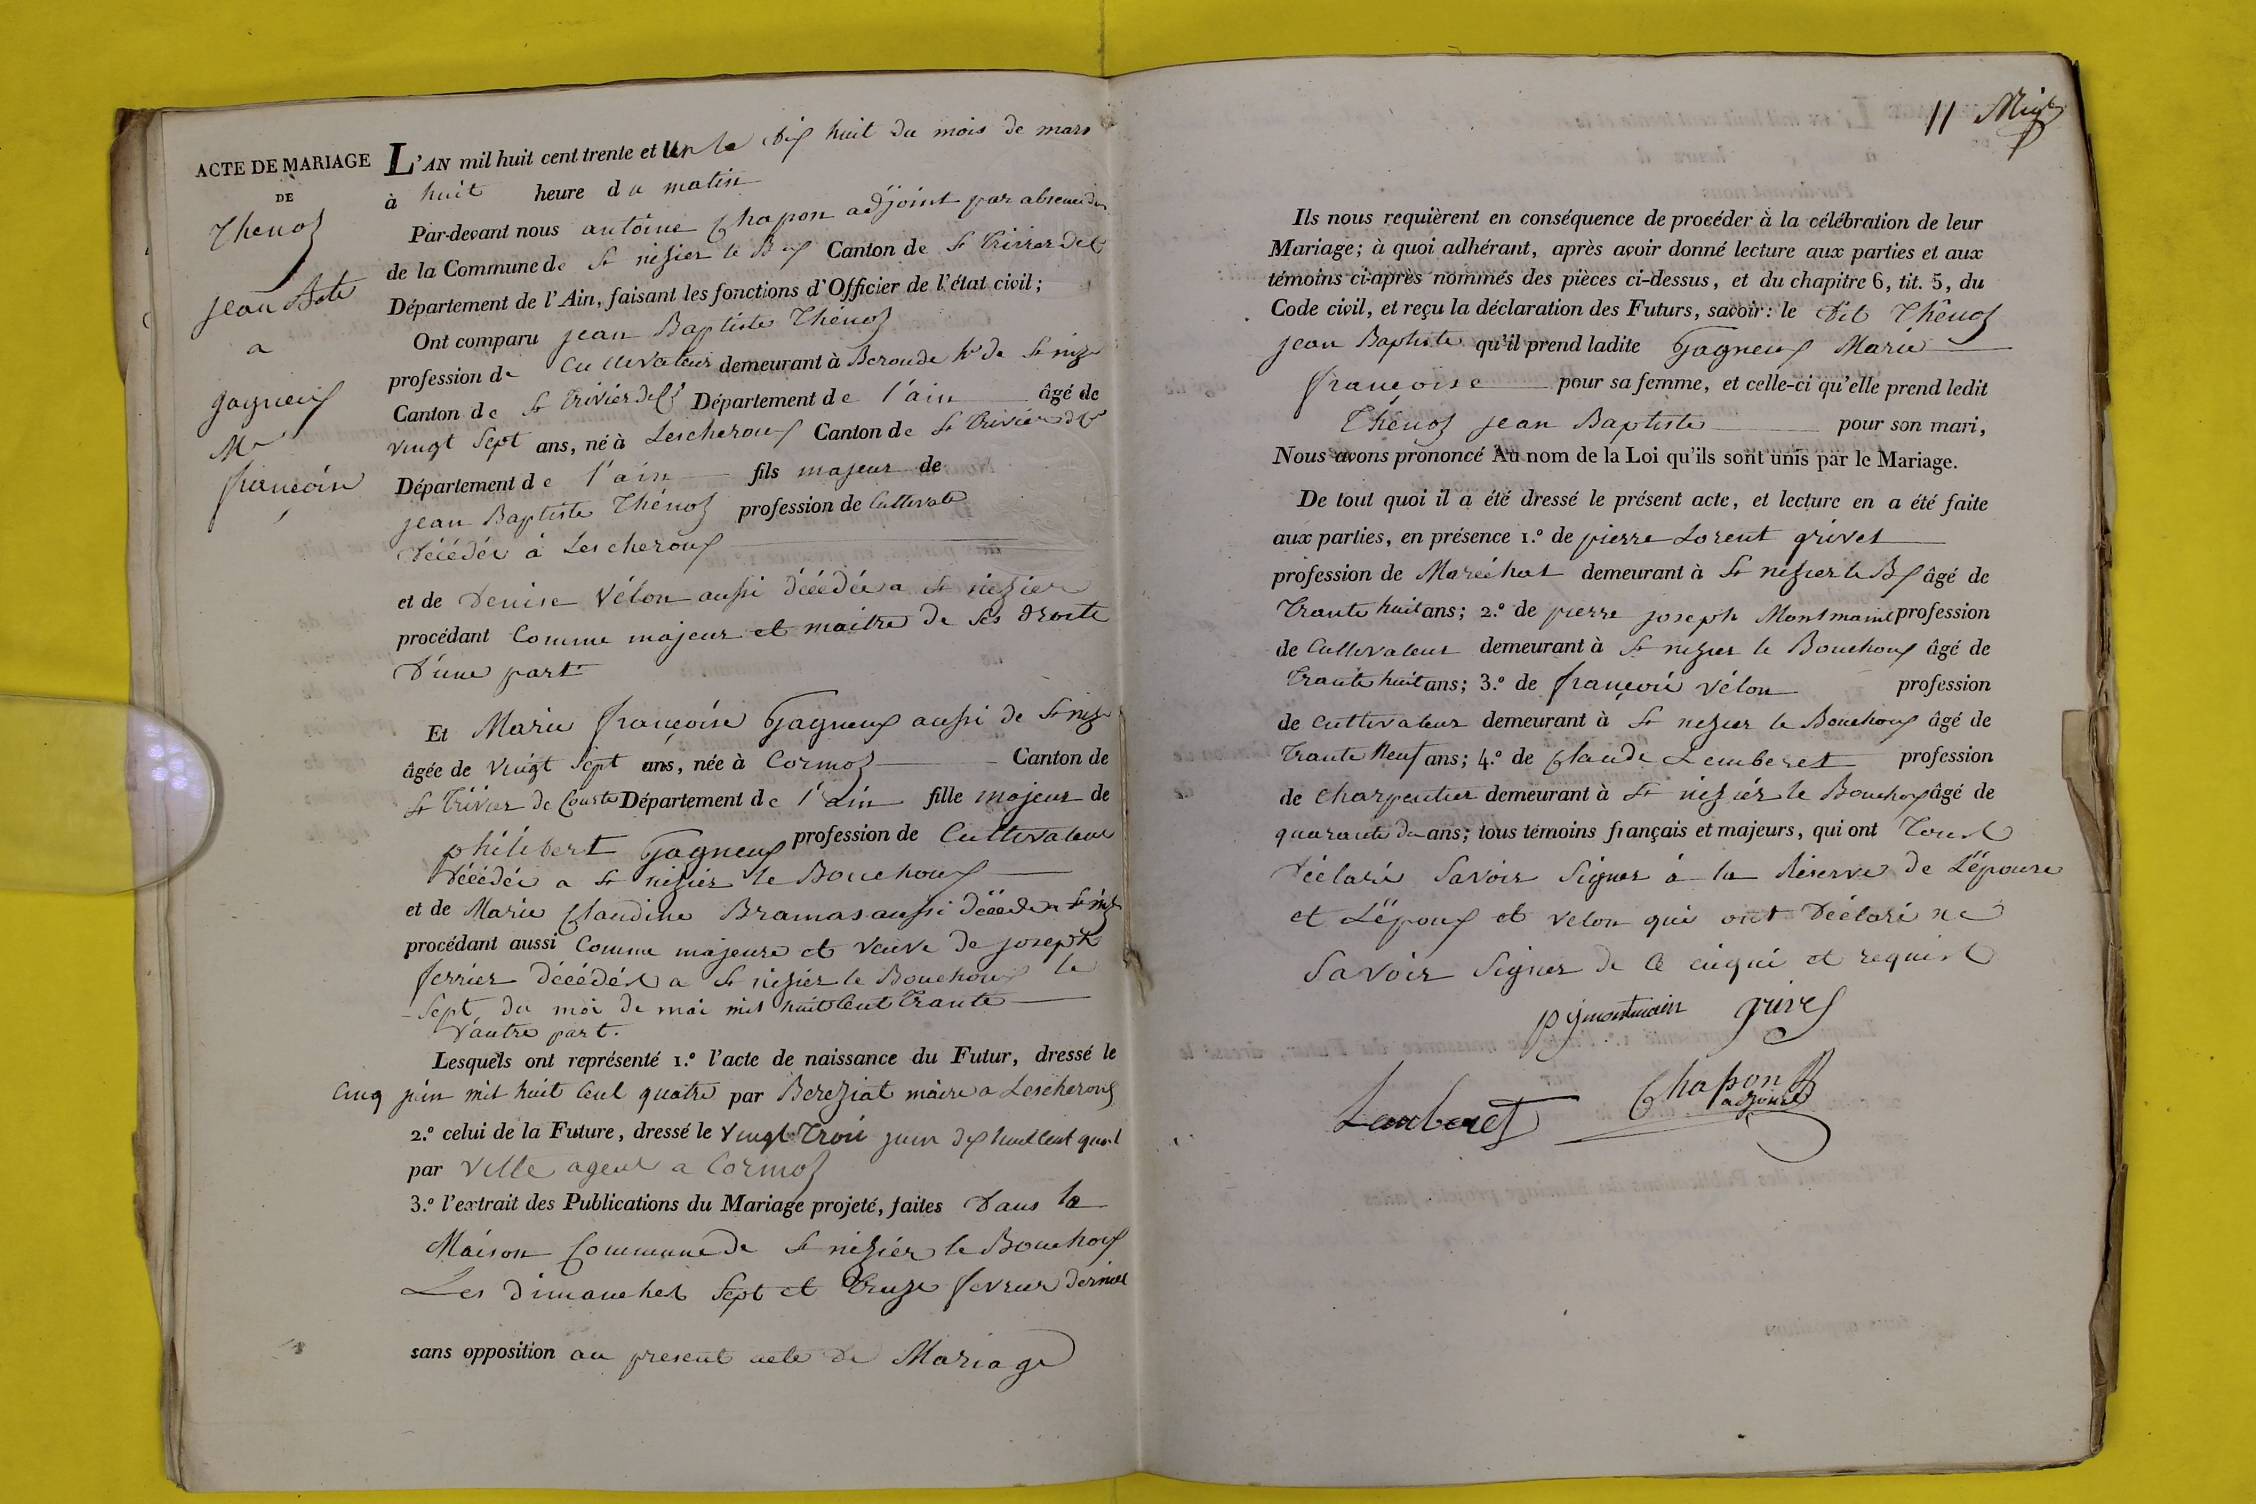 ACTE DE MARIAGE
DE
Thenoz
jean Bpte
a
gagneux
Me
françoise
L'AN mil huit cent trente et un le dix huit du mois de mars
à huit heure du matin
Par-devant nous antoine Chapon adjoint par absence du
de la Commune de St nizier le Bx Canton de St Trivier de C
Département de l'Ain, faisant les fonctions d'Officier de l'état civil;
Ont comparu jean Baptiste Thénoz
profession de Cultivateur demeurant à Beroude he de St niz
Canton de St Trivier de Cs Département de l'ain âgé de
vingt sept ans, né à Lescheroux Canton de St Trivier de Cs
Département de l'ain fils majeur de
jean Baptiste Thénoz profession de Cultivatr
décédée à Lescheroux
et de Denise Vélon aussi décédée a St nizier
procédant Comme majeur et maitre de ses droits
D'une part
Et Marie françoise Gagneux aussi de St niz
âgée de vingt sept ans, née à Cormoz Canton de
St Trivier de Courte Département de l'ain fille majeur de
philibert Gagneux profession de Cultivateur
décédée a St nizier le Bouchoux
et de Marie Claudine Bramas aussi décédée a St niz
procédant aussi Comme majeure et veuve de joseph
ferrier décédés a St nizier le Bouchoux le
sept du moi de mai mil huit Cent Trante
D'autre part.
Lesquels ont représenté 1.º l'acte de naissance du Futur, dressé le
Cinq juin mil huit Cent quatre par Bereziat maire a Lescheroux
2.º celui de la Future, dressé le vingt Trois juin dix huit Cent quat
par Ville agent a Cormoz
3.º l'extrait des Publications du Mariage projeté, faites Dans la
Maison Commune de St nizier le Bouchoux
Les dimanches sept et Treize fevrier dernier
sans opposition au present acte de Mariage
11
Ils nous requièrent en conséquence de procéder à la célébration de leur
Mariage; à quoi adhérant, après avoir donné lecture aux parties et aux
témoins ci-après nommés des pièces ci-dessus, et du chapitre 6, tit. 5, du
Code civil, et reçu la déclaration des Futurs, savoir: le dit Thênoz
jean Baptiste qu'il prend ladite Gagneux Marie
françoise pour sa femme, et celle-ci qu'elle prend ledit
Thénoz jean Baptiste pour son mari,
Nous avons prononcé Au nom de la Loi qu'ils sont unis par le Mariage.
De tout quoi il a été dressé le présent acte, et lecture en a été faite
aux parties, en présence 1.º de pierre Lorent grivet
profession de Maréchat demeurant à St nizier le Bx âgé de
Trante huit ans; 2.º de pierre joseph Montmain profession
de Cultivateur demeurant à St nizier le Bouchoux âgé de
Trante huit ans; 3.º de françois vélon profession
de cultivateur demeurant à St nizier le Bouchoux âgé de
Trante Neuf ans; 4.º de Claude Lemberet profession
de Charpentier demeurant à St nizier le Bouchoux âgé de
quarante d ans; tous témoins français et majeurs, qui ont Tous
Déclaré Savoir Signer á la Réserve de L'épouse
et L'époux et velon qui ont Déclaré ne
Savoir Signer de ce enqui et requist
pjmontmain grivet
Lamberet Chapon
adjoint